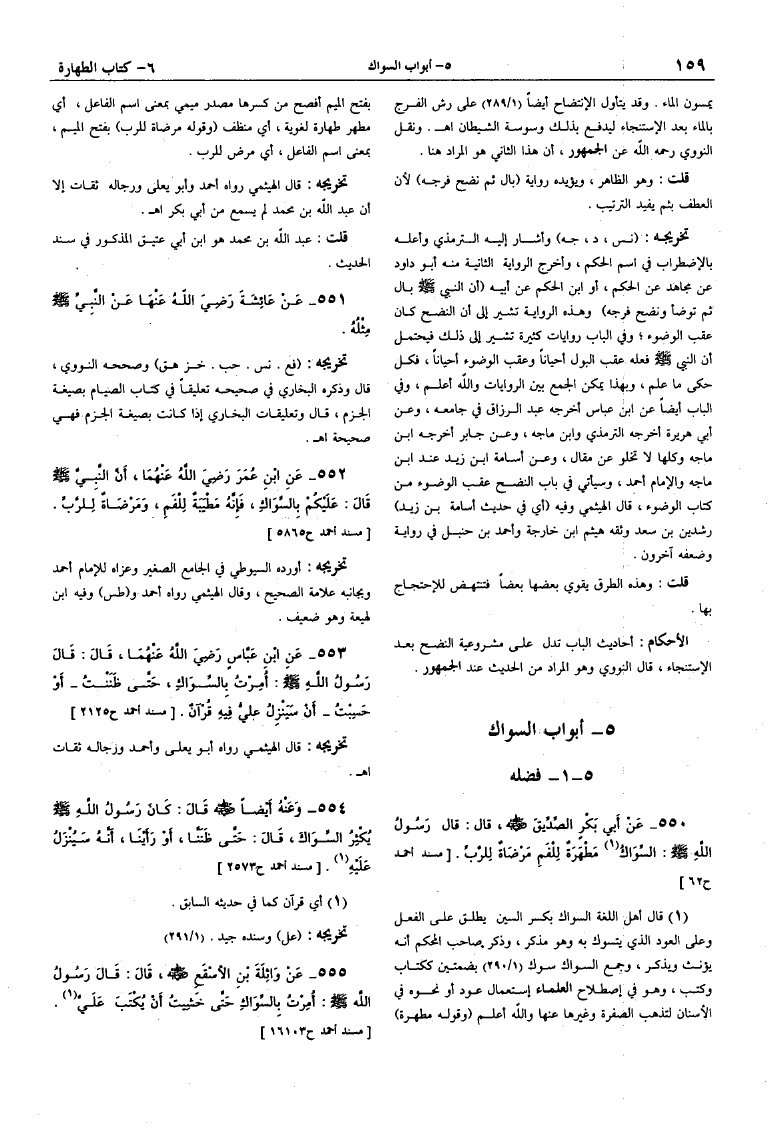 ١٥٩
٥- أبواب السواك
٦- كتاب الطهارة
يمسون الماء . وقد يتأول الإنتضاح أيضاً (٢٨٩/١) على رش الفرج
بالماء بعد الإستنجاء ليدفع بذلك وسوسة الشيطان اهـ . ونقل
النووي رحمه الله عن الجمهور ، أن هذا الثاني هو المراد هنا .
قلت : وهو الظاهر ، ويؤيده رواية (بال ثم نضح فرجه) لأن
العطف بثم يفيد الترتيب .
تخريجه : (نس ، د ، جه) وأشار إليه الترمذي وأعله
بالإضطراب في اسم الحكم ، وأخرج الرواية الثانية منه أبو داود
عن مجاهد عن الحكم ، أو ابن الحكم عن أبيه (أن النبي ﷺ بال
ثم توضأ ونضح فرجه) وهذه الرواية تشير إلى أن النضح كان
عقب الوضوء ؛ وفي الباب روايات كثيرة تشير إلى ذلك فيحتمل
أن النبي ﷺ فعله عقب البول أحياناً وعقب الوضوء أحياناً ، فكل
حكى ما علم ، وبهذا يمكن الجمع بين الروايات والله أعلم ، وفي
الباب أيضاً عن ابن عباس أخرجه عبد الرزاق في جامعه ، وعن
أبي هريرة أخرجه الترمذي وابن ماجه ، وعن جابر أخرجه ابن
ماجه وكلها لا تخلو عن مقال ، وعن أسامة ابن زيد عند ابن
ماجه والإمام أحمد ، وسيأتي في باب النضح عقب الوضوء من
كتاب الوضوء ، قال الهيثمي وفيه (أي في حديث أسامة بن زيد)
رشدين بن سعد وثقه هيثم ابن خارجة وأحمد بن حنبل في رواية
وضعفه آخرون .
قلت : وهذه الطرق يقوي بعضها بعضاً فتنتهض للإحتجاج
بها .
الأحكام : أحاديث الباب تدل على مشروعية النضح بعد
الإستنجاء ، قال النووي وهو المراد من الحديث عند الجمهور .
٥- أبواب السواك
٥-١- فضله
٥٥٠- عَنْ أَبِي بَكْرٍ الصِّدِّيقِ ﷺ ، قال : قال رَسُولُ
اللَّهِ ﷺ : السِّوَاكُ(١) مَطْهَرَةٌ لِلْفَمِ مَرْضَاةٌ لِلرَّبِّ . [مسند احمد
ح٦٢]
(١) قال أهل اللغة السواك بكسر السين يطلق على الفعل
وعلى العود الذي يتسوك به وهو مذكر ، وذكر صاحب المحكم أنه
يؤنث ويذكر ، وجمع السواك سوك (٢٩٠/١) بضمتين ككتاب
وكتب ، وهو في إصطلاح العلماء إستعمال عود أو نحوه في
الأسنان لتذهب الصفرة وغيرها عنها والله أعلم (وقوله مطهرة)
بفتح الميم أفصح من كسرها مصدر ميمي بمعنى اسم الفاعل ، أي
مطهر طهارة لغوية ، أي منظف (وقوله مرضاة للرب) بفتح الميم ،
بمعنى اسم الفاعل ، أي مرض للرب .
تخريجه : قال الهيثمي رواه أحمد وأبو يعلى ورجاله ثقات إلا
أن عبد الله بن محمد لم يسمع من أبي بكر اهـ .
قلت : عبد الله بن محمد هو ابن أبي عتيق المذكور في سند
الحديث .
٥٥١- عَنْ عَائِشَةَ رَضِيَ اللَّهُ عَنْهَا عَنْ النَّبِيِّ ﷺ
مِثْلُهُ .
تخريجه : (فع . نس . حب . خز هق) وصححه النووي ،
قال وذكره البخاري في صحيحه تعليقاً في كتاب الصيام بصيغة
الجزم ، قال وتعليقات البخاري إذا كانت بصيغة الجزم فهي
صحيحة اهـ .
٥٥٢- عَنِ ابْنِ عُمَرَ رَضِيَ اللَّهُ عَنْهُمَا ، أَنَّ النَّبِيَّ ﷺ
قَالَ : عَلَيْكُمْ بِالسِّوَاكِ ، فَإِنَّهُ مَطْيَبَةٌ لِلْفَمِ ، وَمَرْضَاةٌ لِلرَّبِّ .
[مسند احمد ح٥٨٦٥]
تخريجه : أورده السيوطي في الجامع الصغير وعزاه للإمام أحمد
وبجانبه علامة الصحيح ، وقال الهيثمي رواه أحمد و(طس) وفيه ابن
لهيعة وهو ضعيف .
٥٥٣- عَنِ ابْنِ عَبَّاسٍ رَضِيَ اللَّهُ عَنْهُمَا ، قَالَ : قَالَ
رَسُولُ اللَّهِ ﷺ : أُمِرْتُ بِالسِّوَاكِ ، حَتَّى ظَنَنْتُ - أَوْ
حَسِبْتُ - أَنْ سَيَنْزِلُ عَلَيَّ فِيهِ قُرْآنٌ . [مسند احمد ح٢١٢٥]
تخريجه : قال الهيثمي رواه أبو يعلى وأحمد ورجاله ثقات
اهـ .
٥٥٤- وَعَنْهُ أَيْضاً ﷺ قَالَ : كَانَ رَسُولُ اللَّهِ ﷺ
يُكْثِرُ السِّوَاكَ ، قَالَ : حَتَّى ظَنَنَّا ، أَوْ رَأَيْنَا ، أَنَّهُ سَيُنْزَلُ
عَلَيْهِ(١) . [مسند احمد ح٢٥٧٣]
(١) أي قرآن كما في حديثه السابق .
تخريجه : (عل) وسنده جيد . (٢٩١/١)
٥٥٥- عَنْ وَاثِلَةَ بْنِ الأَسْقَعِ ﷺ ، قَالَ : قَالَ رَسُولُ
الله ﷺ : أُمِرْتُ بِالسِّوَاكِ حَتَّى خَشِيتُ أَنْ يُكْتَبَ عَلَيَّ(١) .
[مسند احمد ح١٦١٠٣]